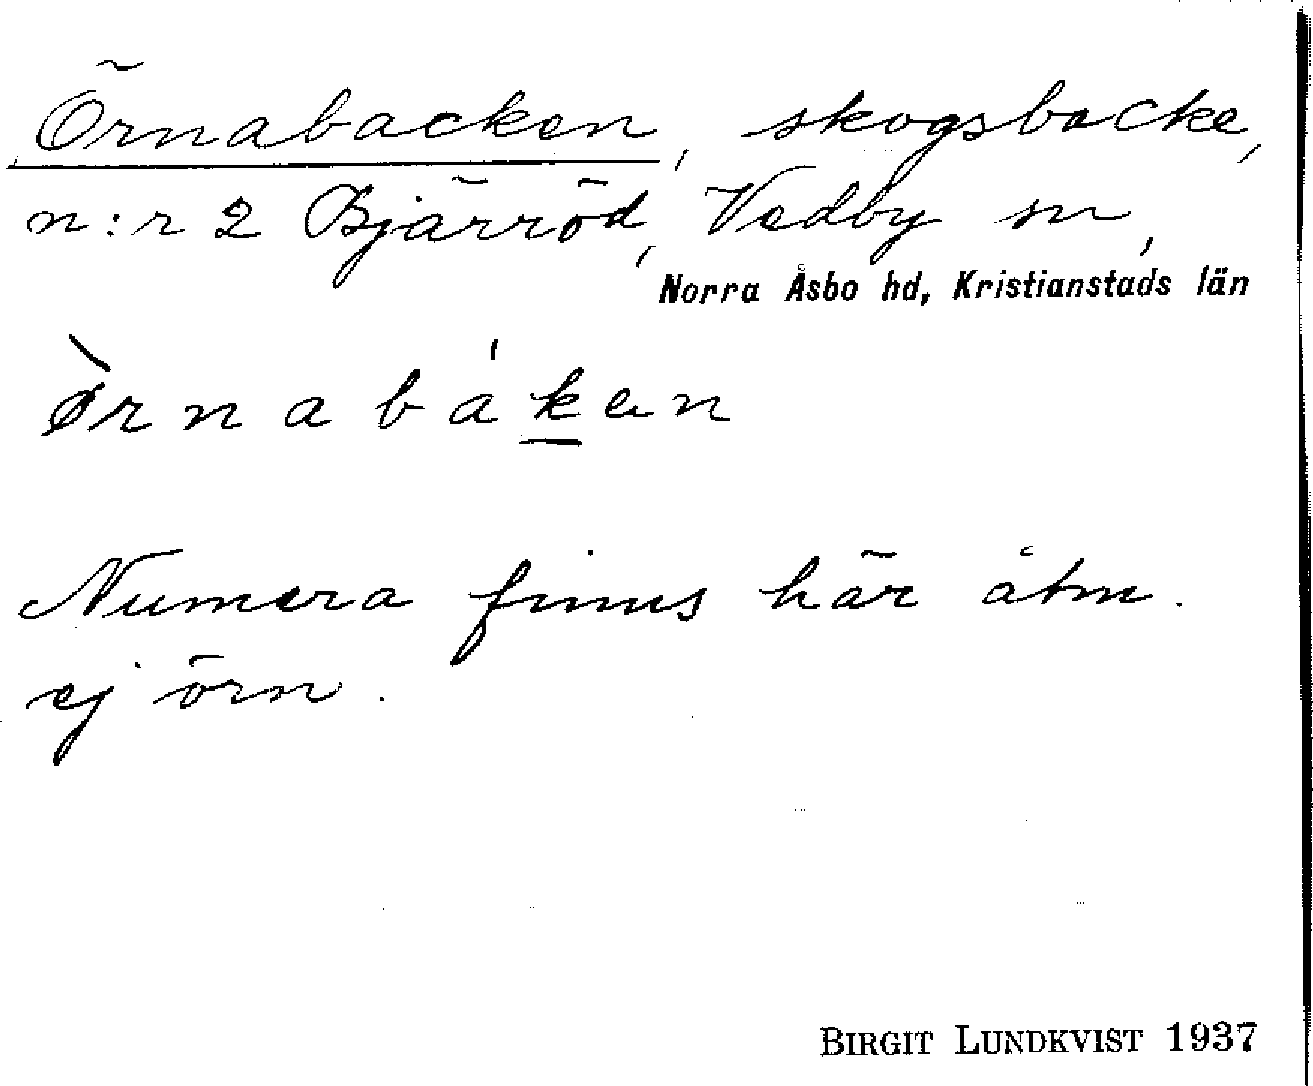 Örnabacken, skogsbacke,
n:r 2 Bjärröd, Vedby sn,
Norra Åsbo hd, Kristianstads län
ø̀rnabák̲en
Numera finns här åtm.
ej örn.
BIRGIT LUNDKVIST 1937